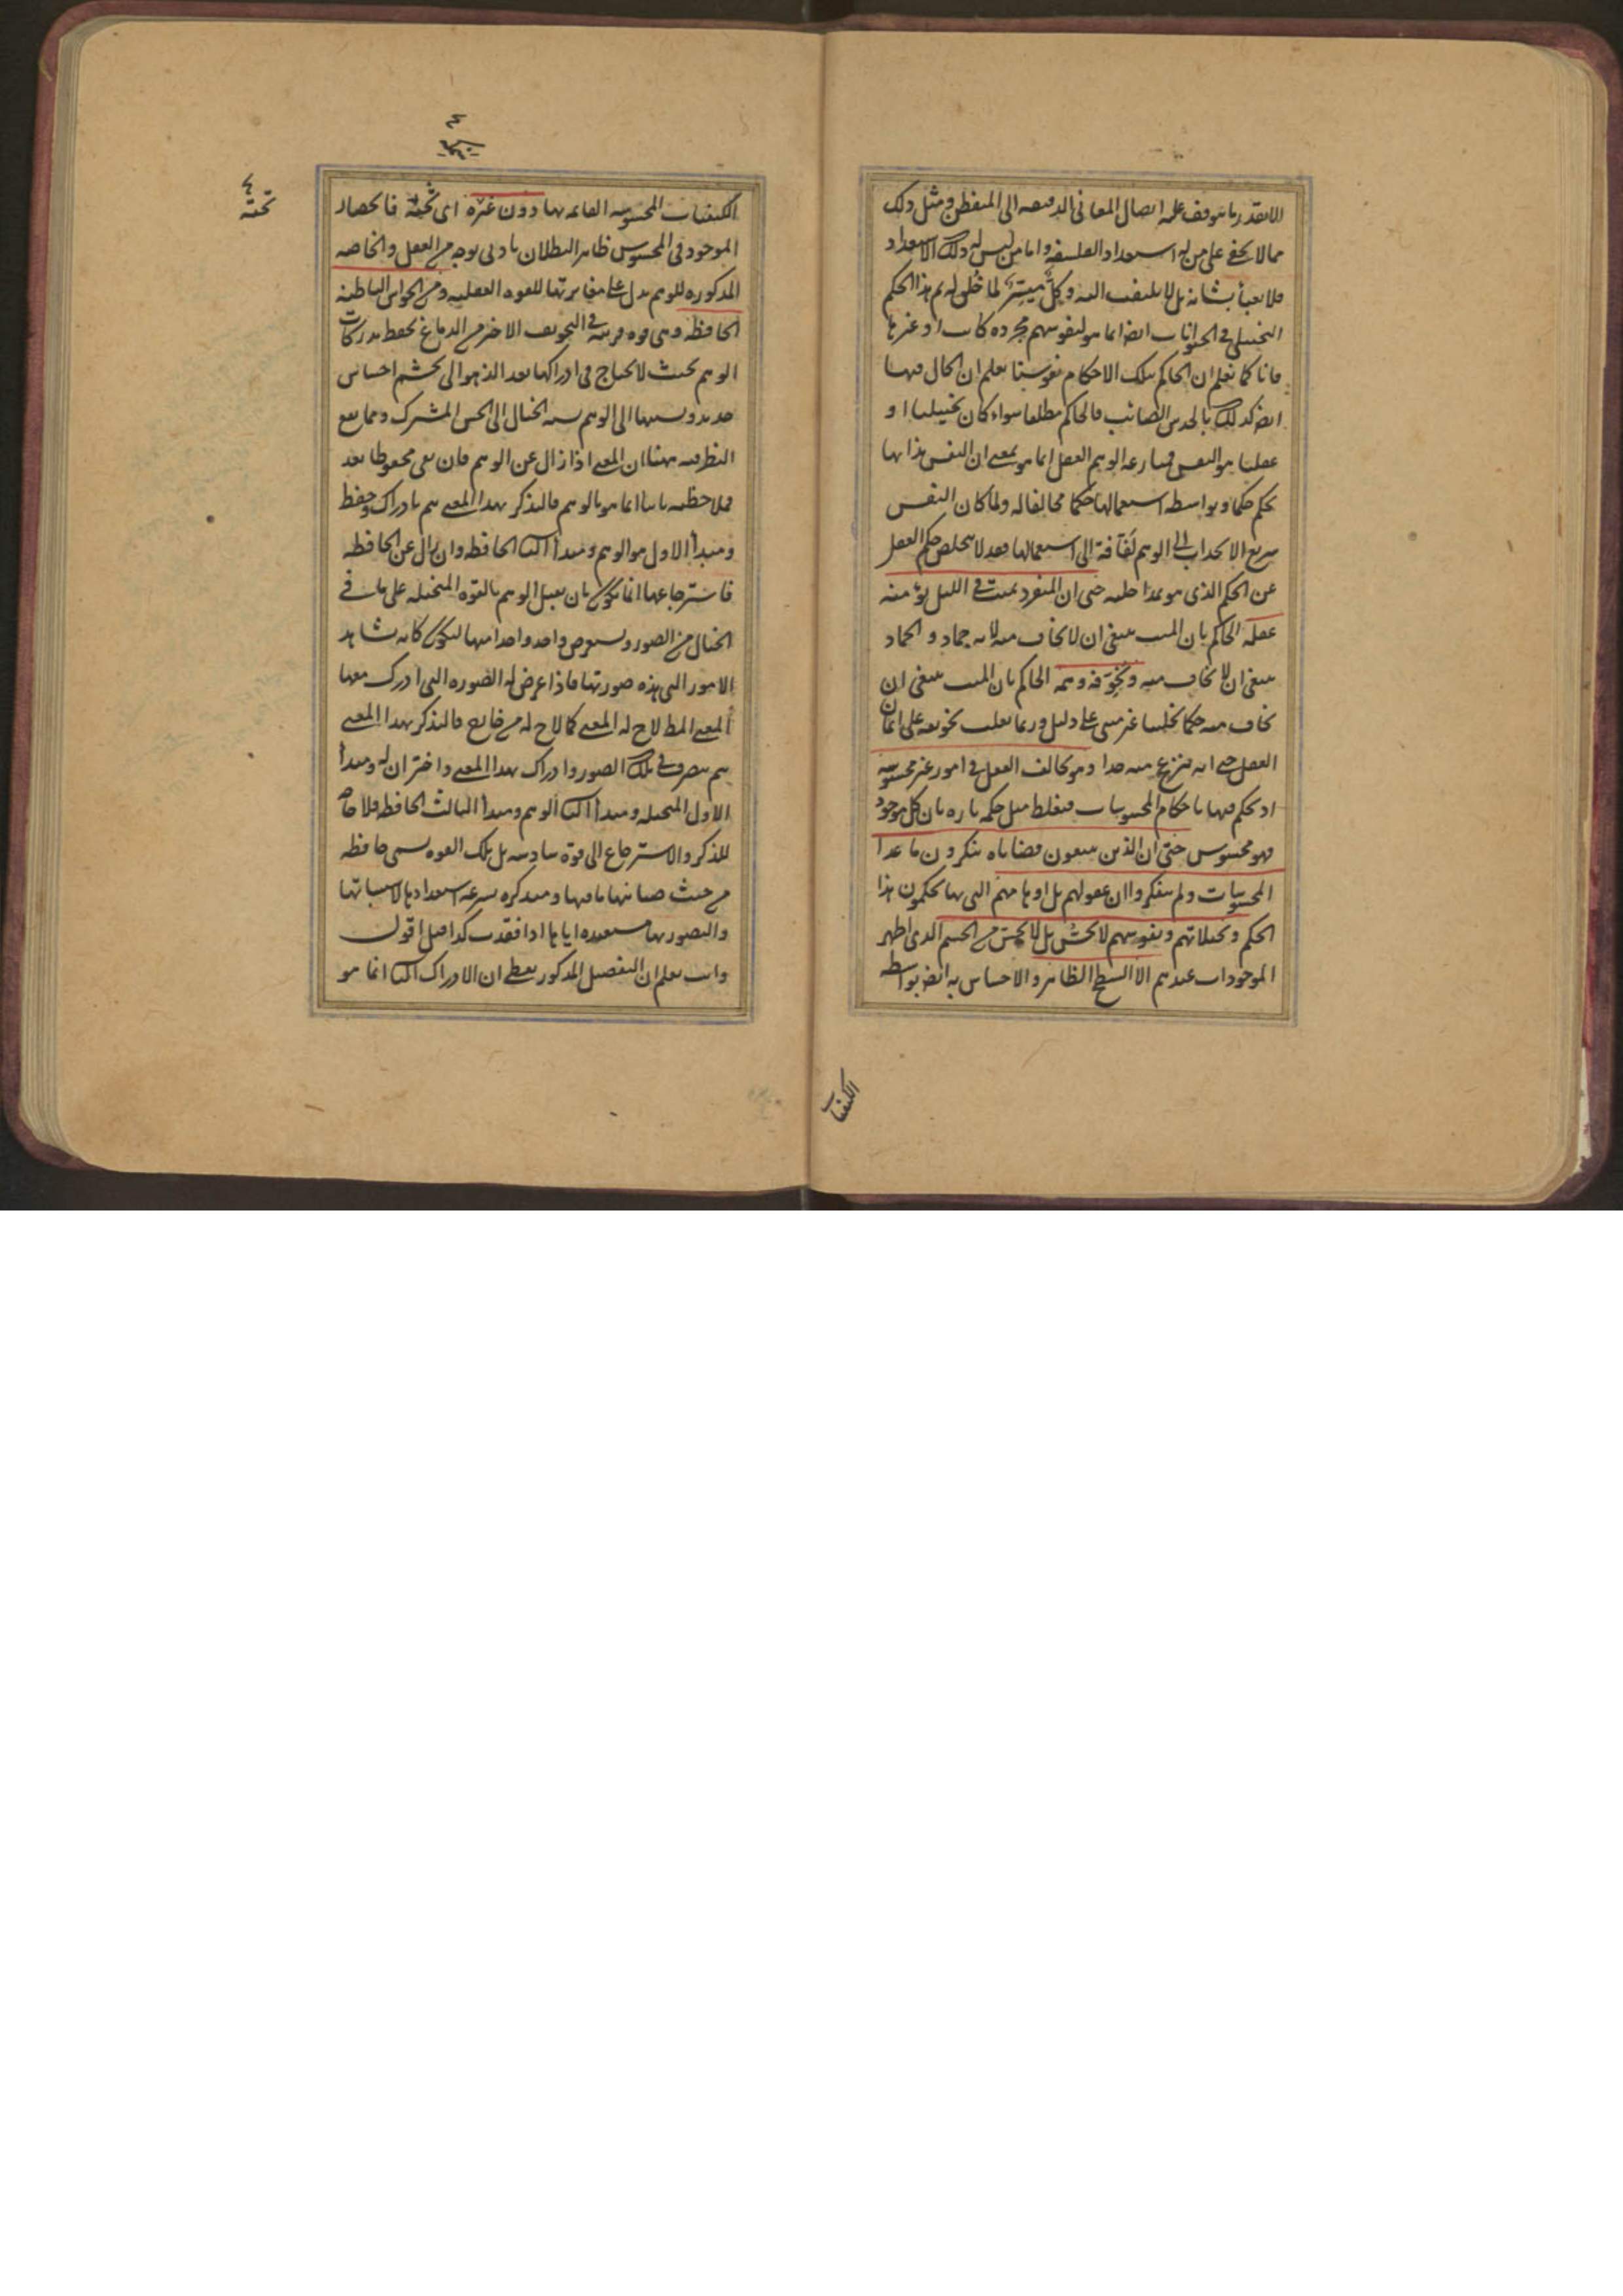 الا بقدر ما يتوقف عليه ايصال المعاني الدقيقه الى المتفطن ومثل ذلك
مما لا يخفى على من له استعداد الفلسفه واما من ليس له ذلك الاستعداد
فلا يعبأ بشانه بل لا يلتفت اليه وكلٌّ ميسّر لما خُلق له ثم هذا الحكم
التخيلي في الحيوانات ايضا انما هو لنفوسهم مجرده كانت او غيرها
فانا كما نعلم ان الحاكم بتلك الاحكام نفوسنا نعلم ان الحال فيها
ايضا كذلك بالحدس الصائب فالحاكم مطلقا سواء كان تخييليا او
عقليا هو النفس فمنازعه الوهم العقل انما هو بمعنى ان النفس بذاتها
يحكم حكما وبواسطه استعمالها حكما مخالفا له ولما كان النفس
سريع الانجذاب الى الوهم لفاقة الى استعمالها فقد لا يتخلص حكم العقل
عن الحكم الذى هو بمداخلته حتى ان المنفرد بميت في الليل يؤمنه
عقله الحاكم بان الميت ينبغى ان لا يخاف منه لانه جماد و الجماد
ينبغى ان لا يخاف منه ويُخوّفه وهمه الحاكم بان الميت ينبغى ان
يخاف منه حكما تخيليا غير مبنى على دليل وربما يغلب تخويفه على ايمان
العقل حتى انه ينزعج منه جدا وهو يخالف العقل في امور غير محسوسه
اذ يحكم فيها باحكام المحسوسات فيغلط مثل حكمه تاره بان كل موجود
فهو محسوس حتى ان الذين يتبعون قضاياه ينكرون ما عدا
المحسوسات ولم يتفكروا ان عقولهم بل اوهامهم التى بها يحكمون هذا
الحكم وتخيلاتهم ونفوسهم لا يحسّ بل لا يحسّ من الجسم الذى اظهر
الموجودات عندهم الا السطح الظاهر والاحساس به ايضا بواسطه
الكيفيات
الكيفيات المحسوسه القائمه بها دون غيره اى تحته فانحصار
الموجود فى المحسوس ظاهر البطلان بادنى توجه من العقل والخاصه
المذكوره للوهم يدل على مغايرتها للقوه العقليه ومن الحواس الباطنه
الحافظه وهى قوه مرتبه في التجويف الاخر من الدماغ يحفظ مدركات
الوهم بحيث لا يحتاج فى ادراكها بعد الذهول الى تجشم احساس
جديد ونسبتها الى الوهم نسبه الخيال الى الحس المشترك ومما يقع
النظر فيه ههنا ان المعنى اذا زال عن الوهم فان بقى محفوظا بعد
فملاحظته ثانيا انما هو بالوهم فالتذكر بهذا المعنى يتم بادراك وحفظ
ومبدأ الاول هو الوهم ومبدأ الثانى الحافظه وان زال عن الحافظه
فاسترجاعها انما يكون بان يقبل الوهم بالقوه المتخيله على ما في
الخيال من الصور ويستعرض واحدا واحدا منها ليكون كانه يشاهد
الامور التى هذه صورتها فاذا عرض له الصوره التى ادرك معها
المعنى المطلوب لاح له المعنى كما لاح له من خارج فالتذكر بهذا المعنى
يتم بتصرف في تلك الصور وادراك بهذا المعنى واختزان له ومبدأ
الاول المتخيله ومبدأ الثانى الوهم ومبدأ الثالث الحافظه فلا حاجه
للتذكر والاسترجاع الى قوة سادسه بل تلك القوه يسمى حافظه
من حيث صيانتها ما فيها ومتذكره لسرعه استعدادها لاستثباتها
والتصور بها مستعيده اياها اذا فقدت كذا قيل اقول
وانت تعلم ان التفصيل المذكور يعطى ان الادراك الثانى انما هو
تحته